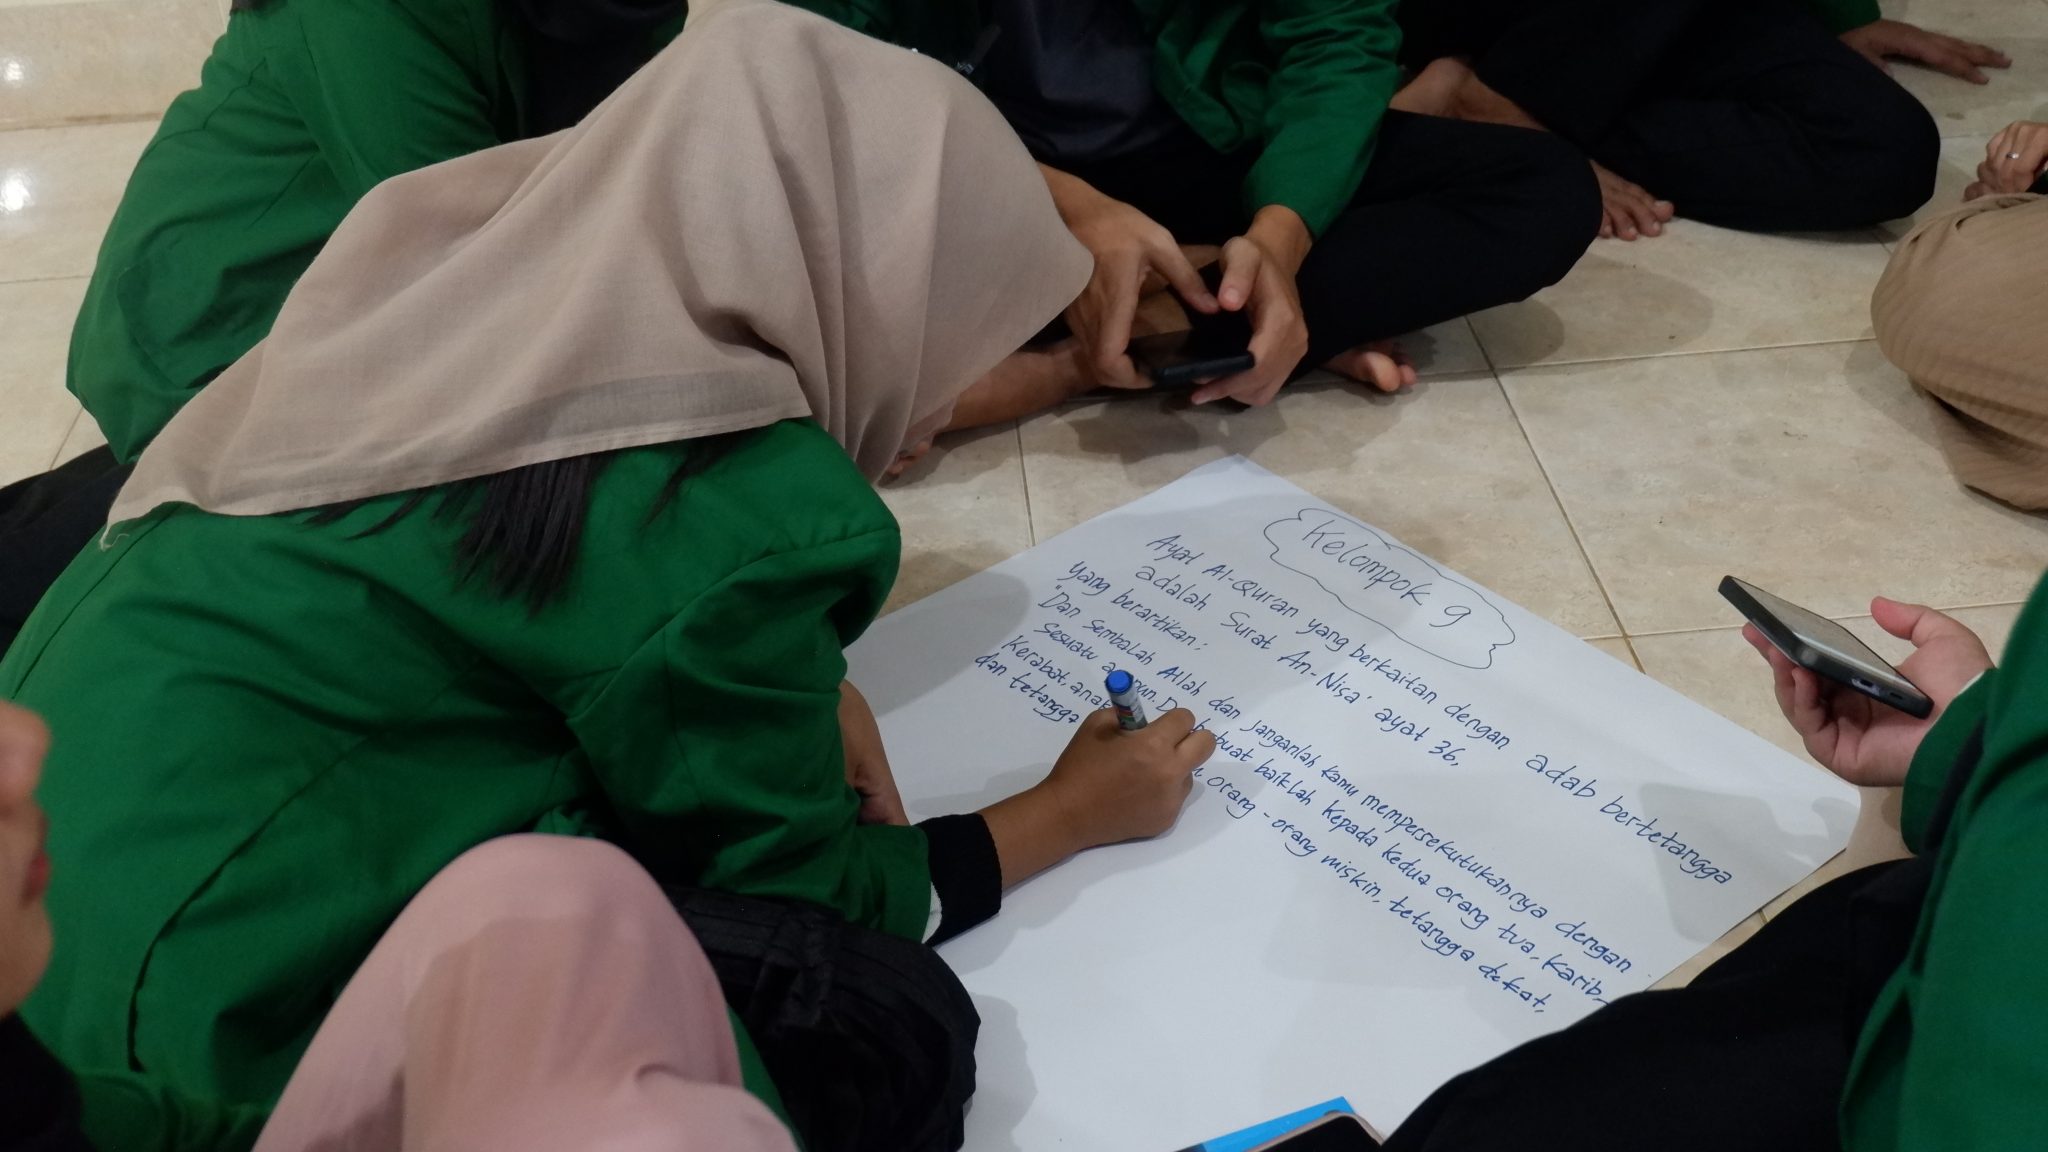 Kelompok 9
Ayat Al-Qur'an yang berkaitan dengan adab bertetangga
adalah Surat An-Nisa' ayat 36,
yang berartikan:
"Dan Sembalah Allah dan janganlah kamu mempersekutukannya dengan
sesuatu buat baiklah kepada kedua orang tua, karib-
kerabat, orang-orang miskin, tetangga dekat,
dan tetangga